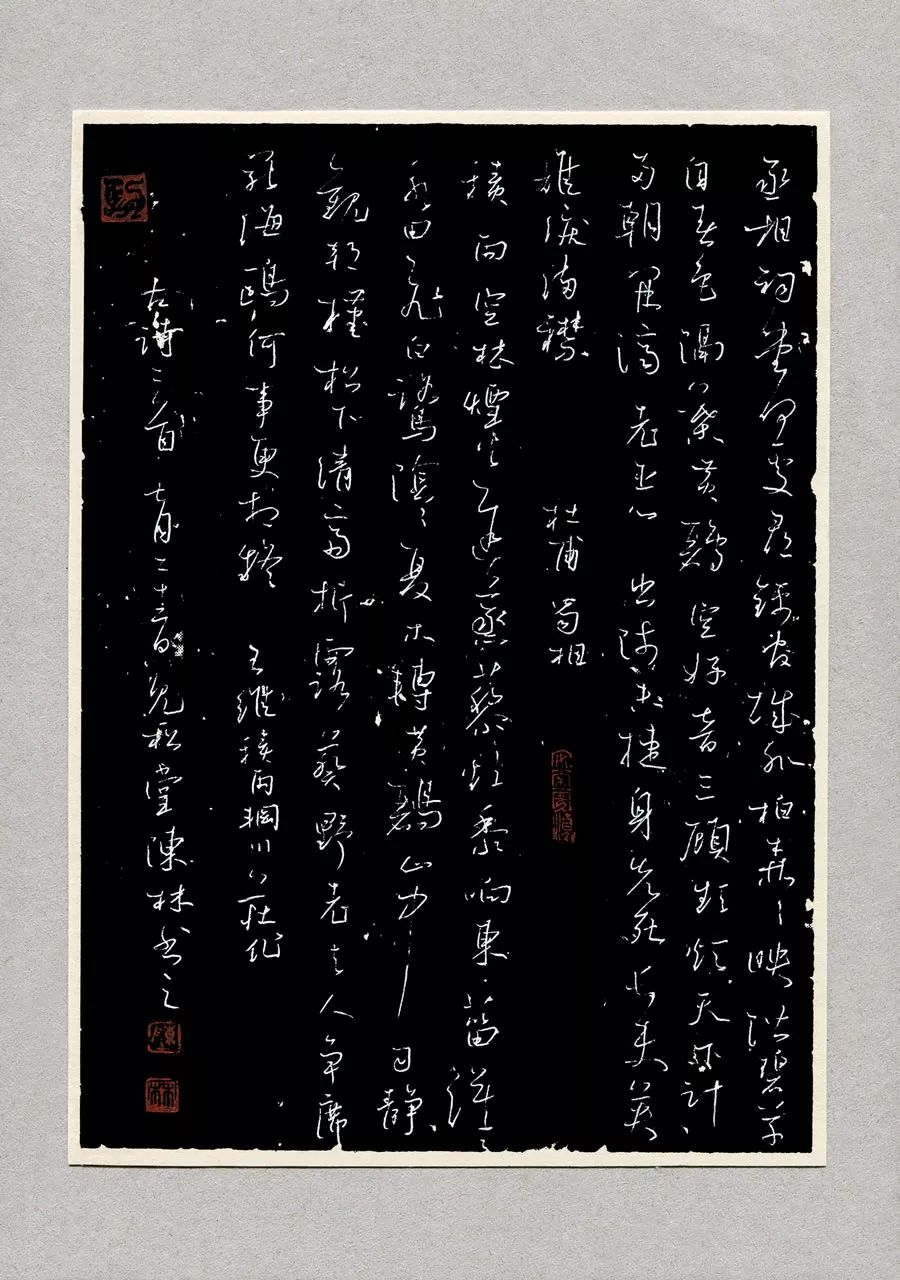 丞相祠堂何處尋錦官城外柏森〻映階碧草
自春色隔葉黃鸝空好音三顧頻煩天下計
兩朝開濟老臣心出師未捷身先死長使英
雄淚滿襟 杜甫蜀相
積雨空林煙火遲蒸藜炊黍餉東菑漠〻
水田飛白鷺陰〻夏木囀黃鸝山中習靜
觀朝槿松下清齋折露葵野老與人爭席
罷海鷗何事更相疑 王維積雨輞川莊作
古詩二首 七月二十三日見松堂陳林書之